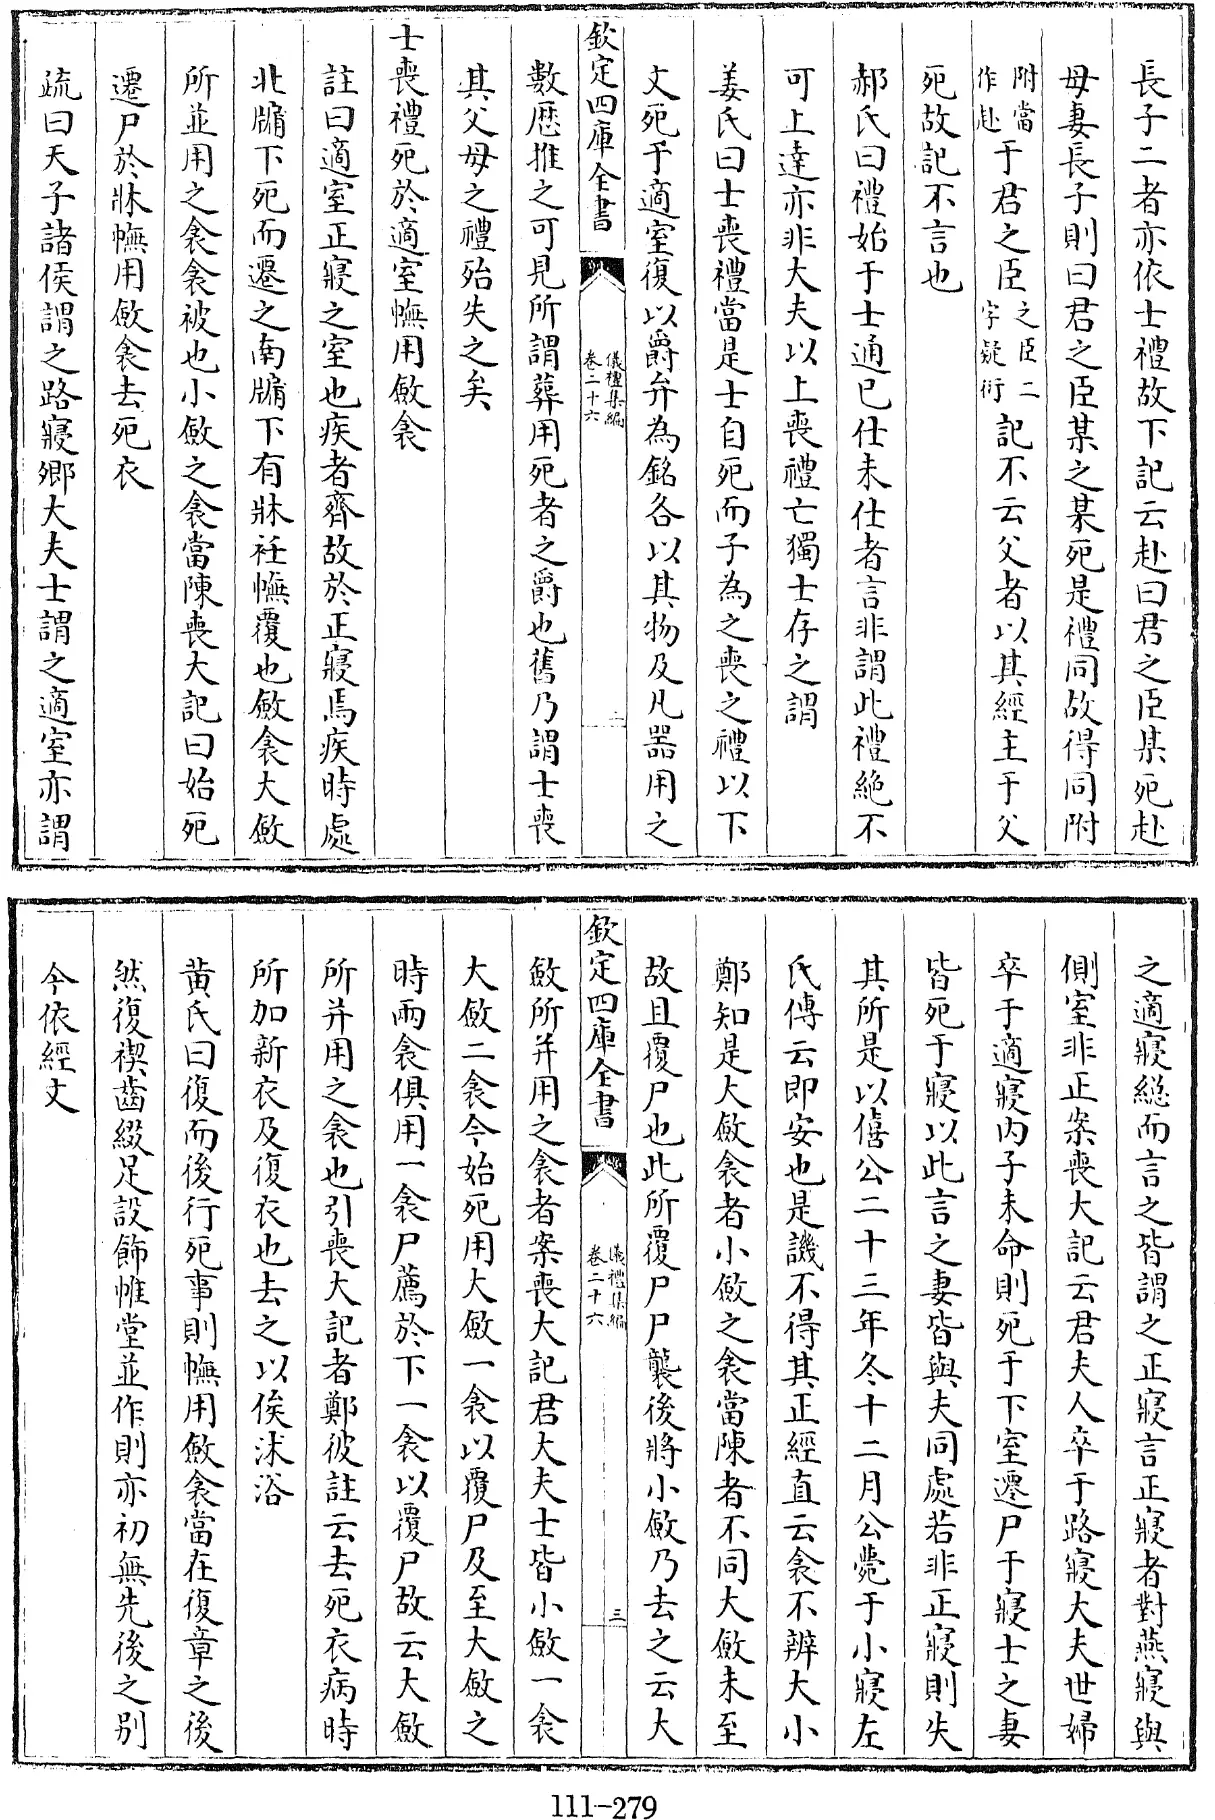 長子二者亦依士禮故下記云赴曰君之臣某死赴
母妻長子則曰君之臣某之某死是禮同故得同附
附當作赴于君之臣之臣二字疑衍記不云父者以其經主于父
死故記不言也
郝氏曰禮始于士通已仕未仕者言非謂此禮絶不
可上達亦非大夫以上喪禮亡獨士存之謂
姜氏曰士喪禮當是士自死而子為之喪之禮以下
文死于適室復以爵弁為銘各以其物及凡器用之
欽定四庫全書
儀禮集編
卷二十六
二
數歴推之可見所謂葬用死者之爵也舊乃謂士喪
其父母之禮殆失之矣
士喪禮死於適室幠用斂衾
註曰適室正寢之室也疾者齊故於正寢焉疾時處
北牖下死而遷之南牖下有牀衽幠覆也斂衾大斂
所並用之衾衾被也小斂之衾當陳喪大記曰始死
遷尸於牀幠用斂衾去死衣
疏曰天子諸侯謂之路寢卿大夫士謂之適室亦謂
之適寢緫而言之皆謂之正寢言正寢者對燕寢與
側室非正案喪大記云君夫人卒于路寢大夫世婦
卒于適寢内子未命則死于下室遷尸于寢士之妻
皆死于寢以此言之妻皆與夫同處若非正寢則失
其所是以僖公二十三年冬十二月公薨于小寢左
氏傳云即安也是譏不得其正經直云衾不辨大小
鄭知是大斂衾者小斂之衾當陳者不同大斂未至
故且覆尸也此所覆尸尸襲後將小斂乃去之云大
欽定四庫全書
儀禮集編
卷二十六
三
斂所并用之衾者案喪大記君大夫士皆小斂一衾
大斂二衾今始死用大斂一衾以覆尸及至大斂之
時兩衾俱用一衾尸薦於下一衾以覆尸故云大斂
所并用之衾也引喪大記者鄭彼註云去死衣病時
所加新衣及復衣也去之以俟沐浴
黄氏曰復而後行死事則幠用斂衾當在復章之後
然復楔齒綴足設飾帷堂並作則亦初無先後之别
今依經文
111-279